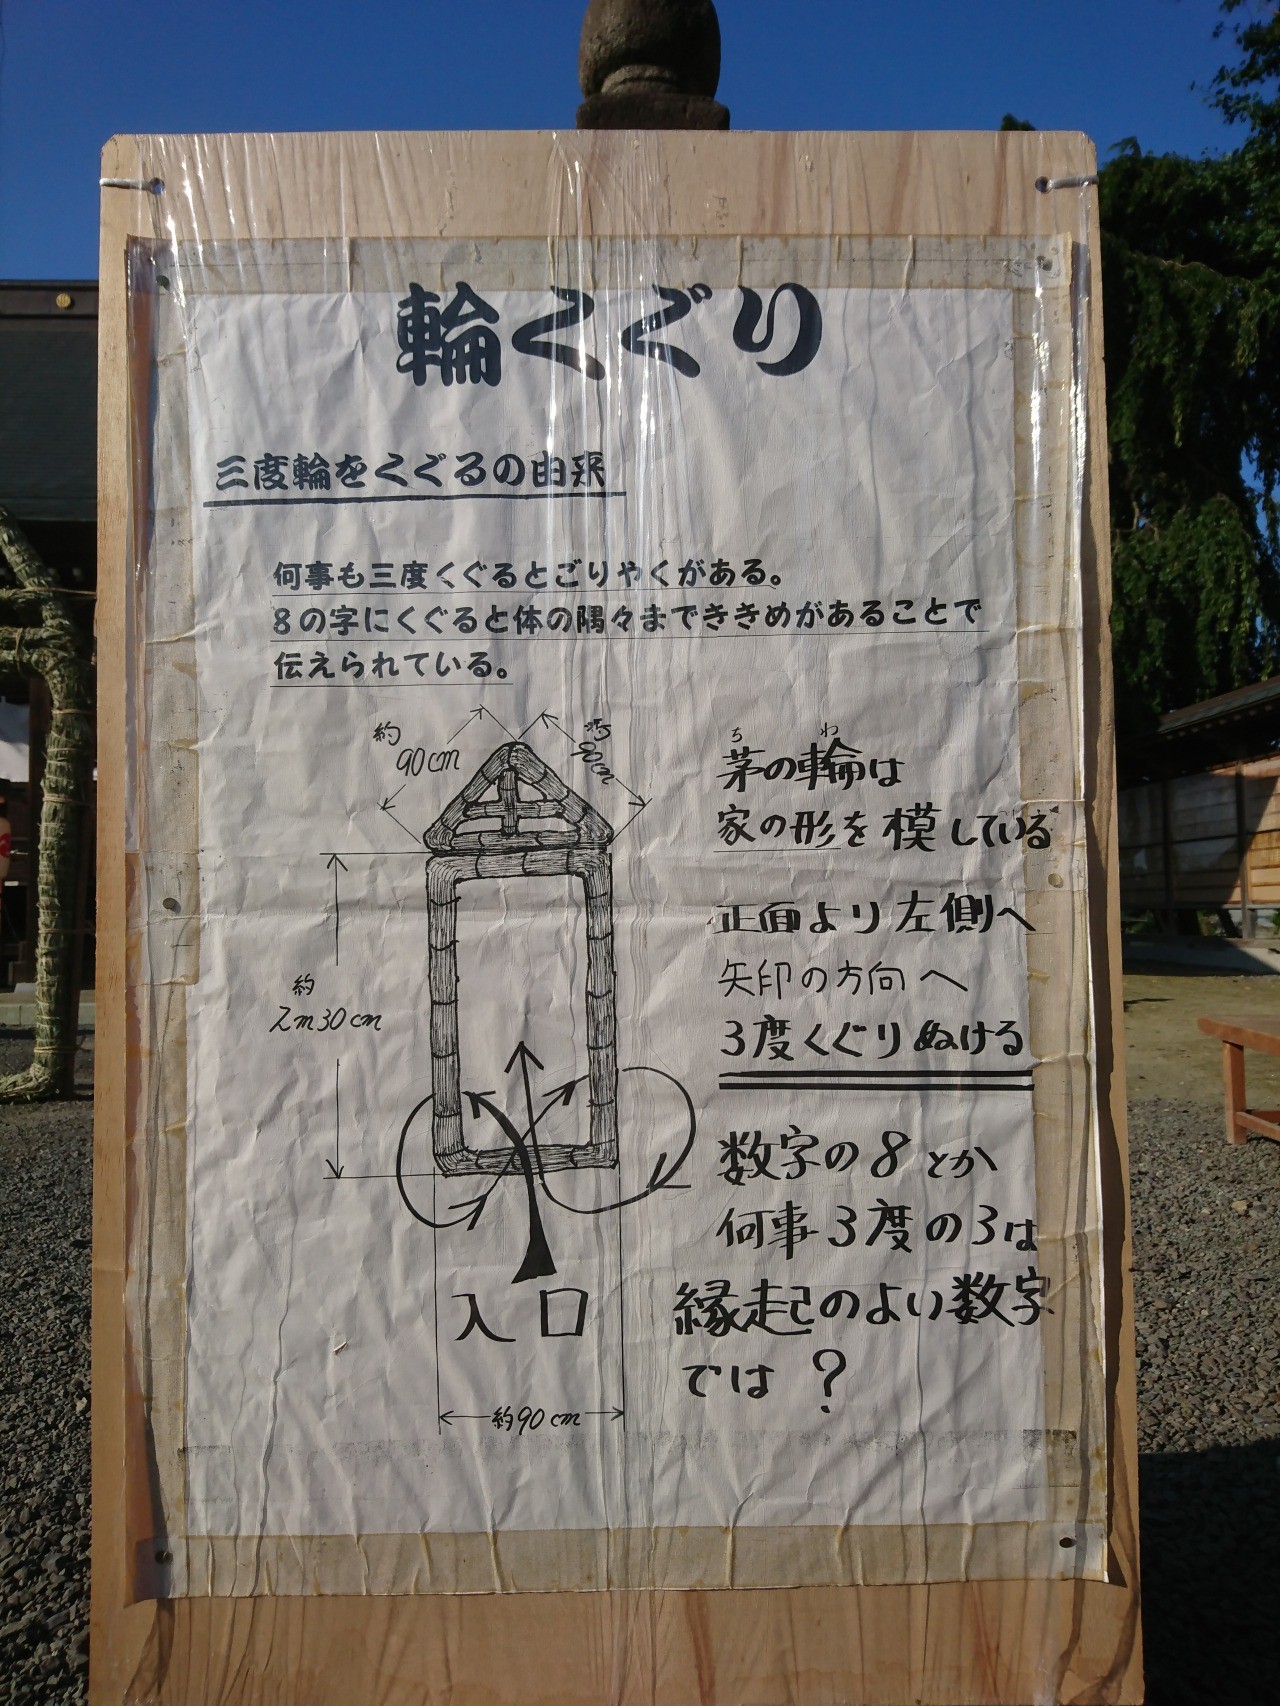 輪くぐり
三度輪をくぐるの由来
何事も三度くぐるとごりやくがある。
8の字にくぐると体の隅々まできき​めがあることで
伝えられている。
約
90cm
約
90cm
約
2m30cm
入口
約90cm
ち わ
茅の輪は
家の形を模している
正面より左側へ
矢印の方向へ
3度くぐりぬける
数字の8とか
何事3度の3は
縁起のよい数字
では?